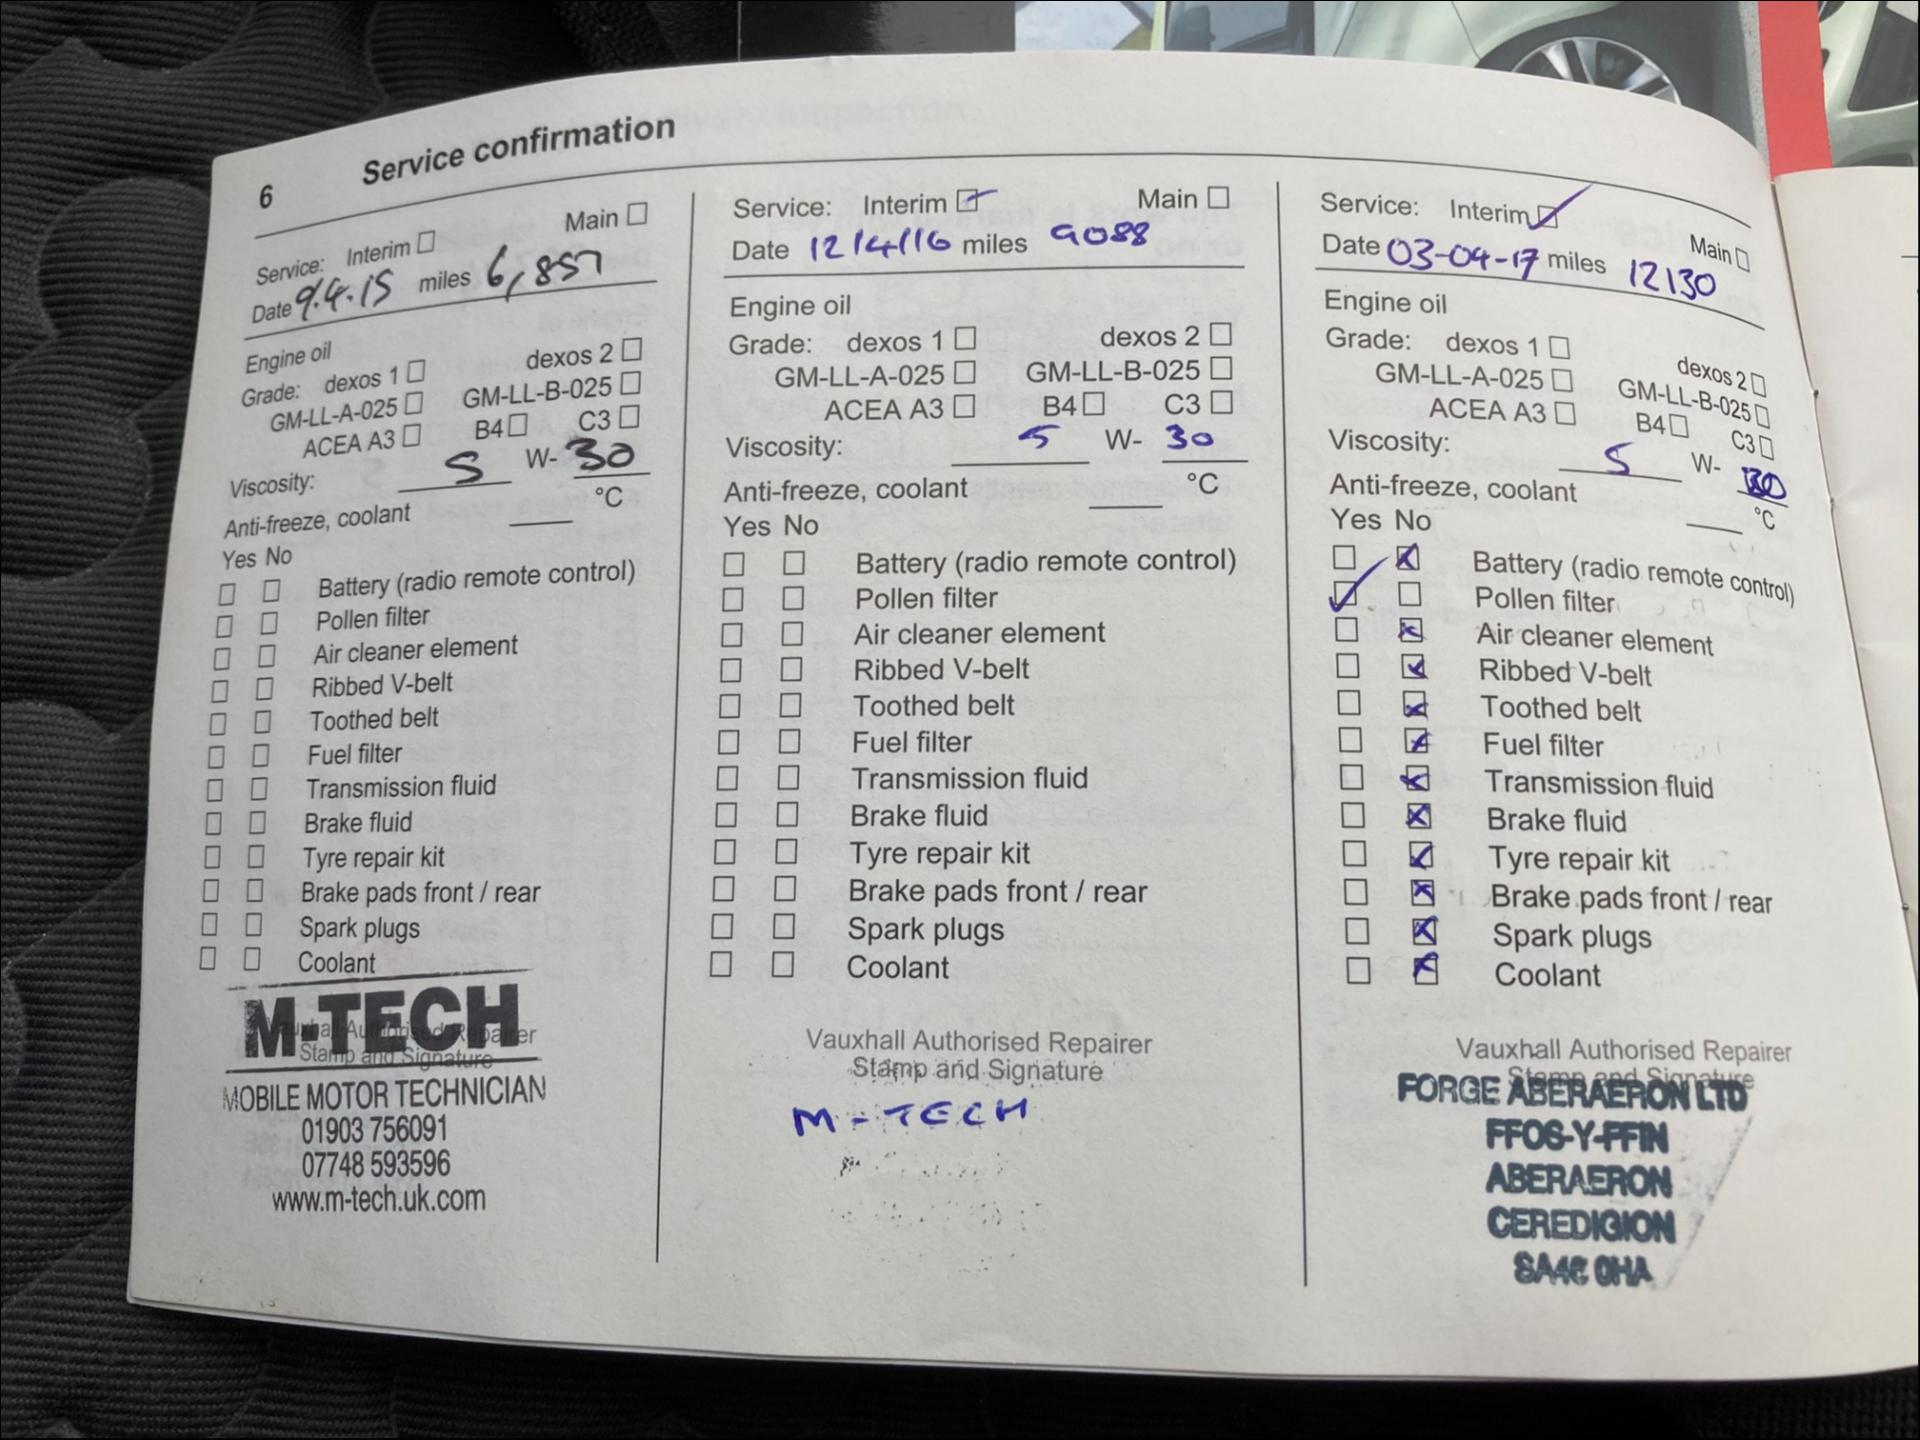 6 Service confirmation
Service: Interim Main
Date 9.4.15 miles 6,857
Engine oil
Grade: dexos 1 dexos 2
GM-LL-A-025 GM-LL-B-025
ACEA A3 B4 C3
Viscosity: 5 W- 30
Anti-freeze, coolant °C
Yes No
Battery (radio remote control)
Pollen filter
Air cleaner element
Ribbed V-belt
Toothed belt
Fuel filter
Transmission fluid
Brake fluid
Tyre repair kit
Brake pads front / rear
Spark plugs
Coolant
M-TECH
Vauxhall Authorised Repairer
Stamp and Signature
MOBILE MOTOR TECHNICIAN
01903 756091
07748 593596
www.m-tech.uk.com
Service: Interim Main
Date 12/4/16 miles 9088
Engine oil
Grade: dexos 1 dexos 2
GM-LL-A-025 GM-LL-B-025
ACEA A3 B4 C3
Viscosity: 5 W- 30
Anti-freeze, coolant °C
Yes No
Battery (radio remote control)
Pollen filter
Air cleaner element
Ribbed V-belt
Toothed belt
Fuel filter
Transmission fluid
Brake fluid
Tyre repair kit
Brake pads front / rear
Spark plugs
Coolant
Vauxhall Authorised Repairer
Stamp and Signature
M-TECH
Service: Interim Main
Date 03-04-17 miles 12130
Engine oil
Grade: dexos 1 dexos 2
GM-LL-A-025 GM-LL-B-025
ACEA A3 B4 C3
Viscosity: 5 W- 30
Anti-freeze, coolant °C
Yes No
Battery (radio remote control)
Pollen filter
Air cleaner element
Ribbed V-belt
Toothed belt
Fuel filter
Transmission fluid
Brake fluid
Tyre repair kit
Brake pads front / rear
Spark plugs
Coolant
Vauxhall Authorised Repairer
Stamp and Signature
FORGE ABERAERON LTD
FFOS-Y-FFIN
ABERAERON
CEREDIGION
SA46 0HA